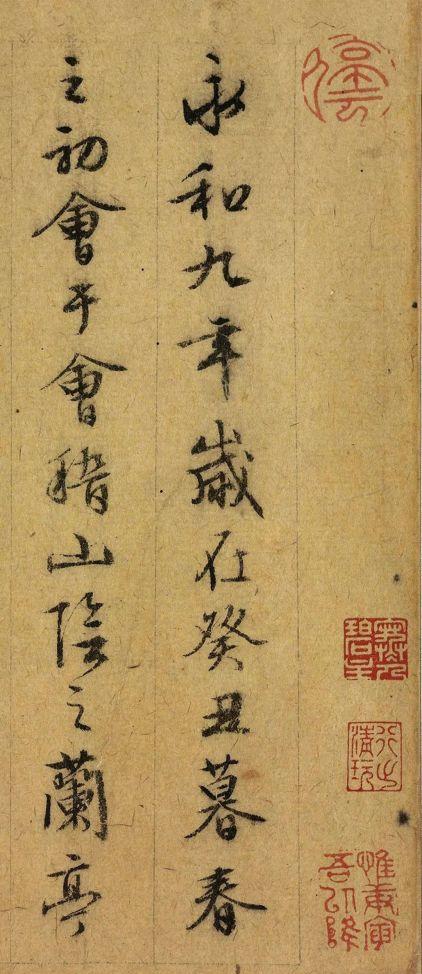 永和九年歲在癸丑暮春
之初會于會稽山陰之蘭亭